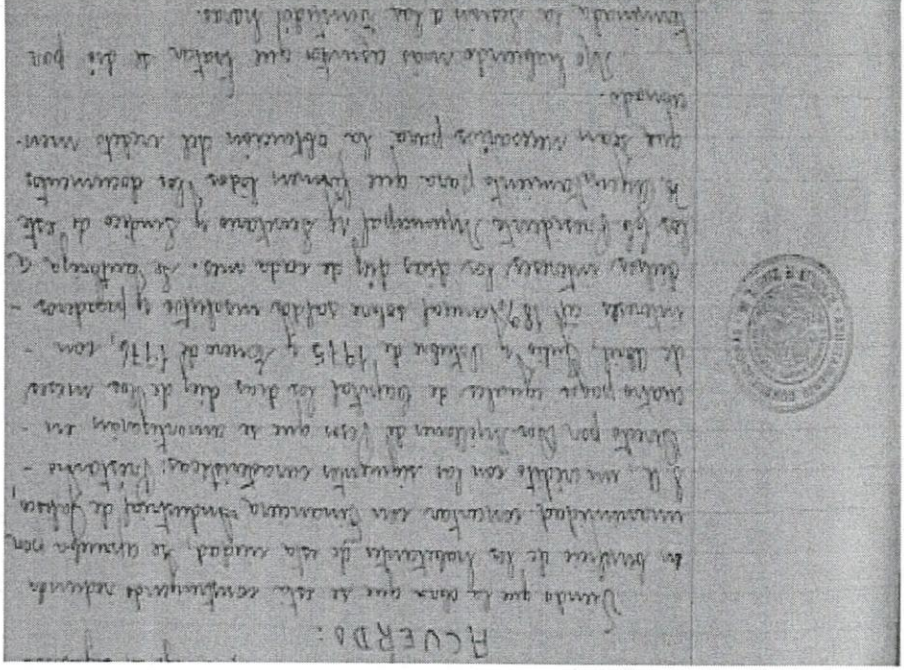 ACUERDO:
Siendo que la obra que se está construyendo redunda
en beneficio de los habitantes de esta ciudad, se aprueba por
unanimidad concertar con Financiera Industrial de Jalisco,
S.A. un crédito con las siguientes características: Préstamo -
Directo por Dos Millones de Pesos que se amortizarán, en -
cuatro pagos iguales de Capital los días diez de los meses
de Abril, Julio y Octubre de 1975 y Enero de 1976, con -
intereses al 18% anual sobre saldos insolutos y pagaderos -
dichos intereses, los días diez de cada mes. Se autoriza a
los CC Presidente Municipal, Secretario y Síndico de este
H. Ayuntamiento para que firmen todos los documentos
que sean necesarios para la obtención del crédito men-
cionado.
No habiendo más asuntos que tratar se dió por
terminada la sesión a las horas.